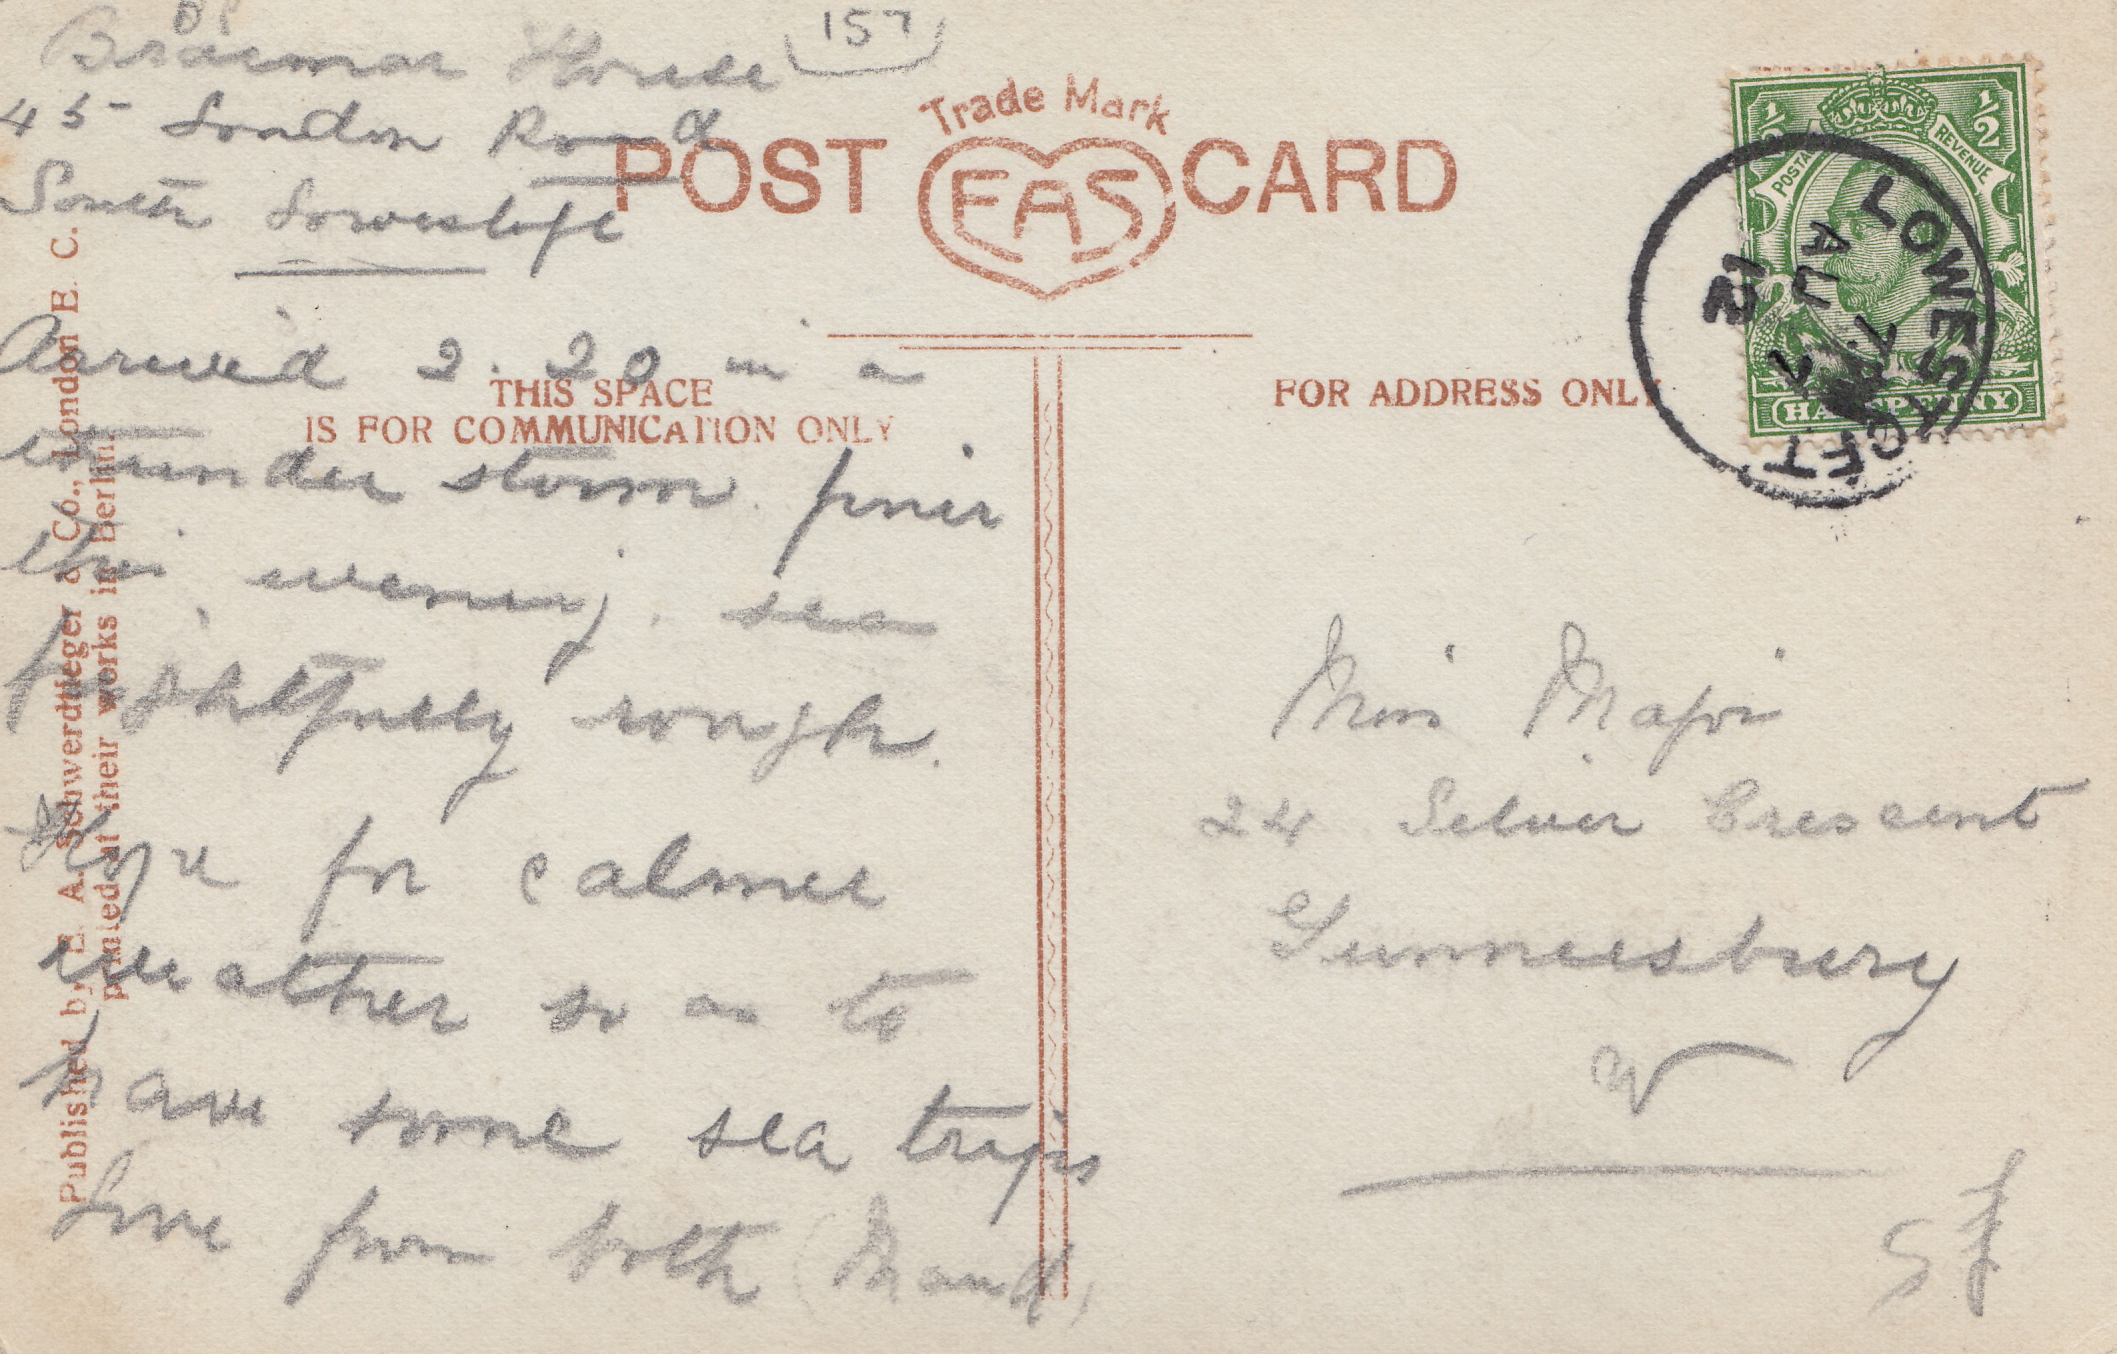 157
Braemar House
45 London Road
South Lowestoft
Trade Mark
POST EAS CARD
½ ½
POSTAGE REVENUE
HALFPENNY
LOWESTOFT
AU 7
12
THIS SPACE
IS FOR COMMUNICATION ONLY
FOR ADDRESS ONLY
Arrived 2.20 in a
thunder storm. finer
this evening. sea
frightfully rough.
Hope for calmer
weather so as to
have some sea trips
Love from both (Maud)
Miss
24 Silver Crescent
Gunnersbury
W
Published by E. A. Schwerdtfeger & Co., London E. C.
printed at their works in Berlin.